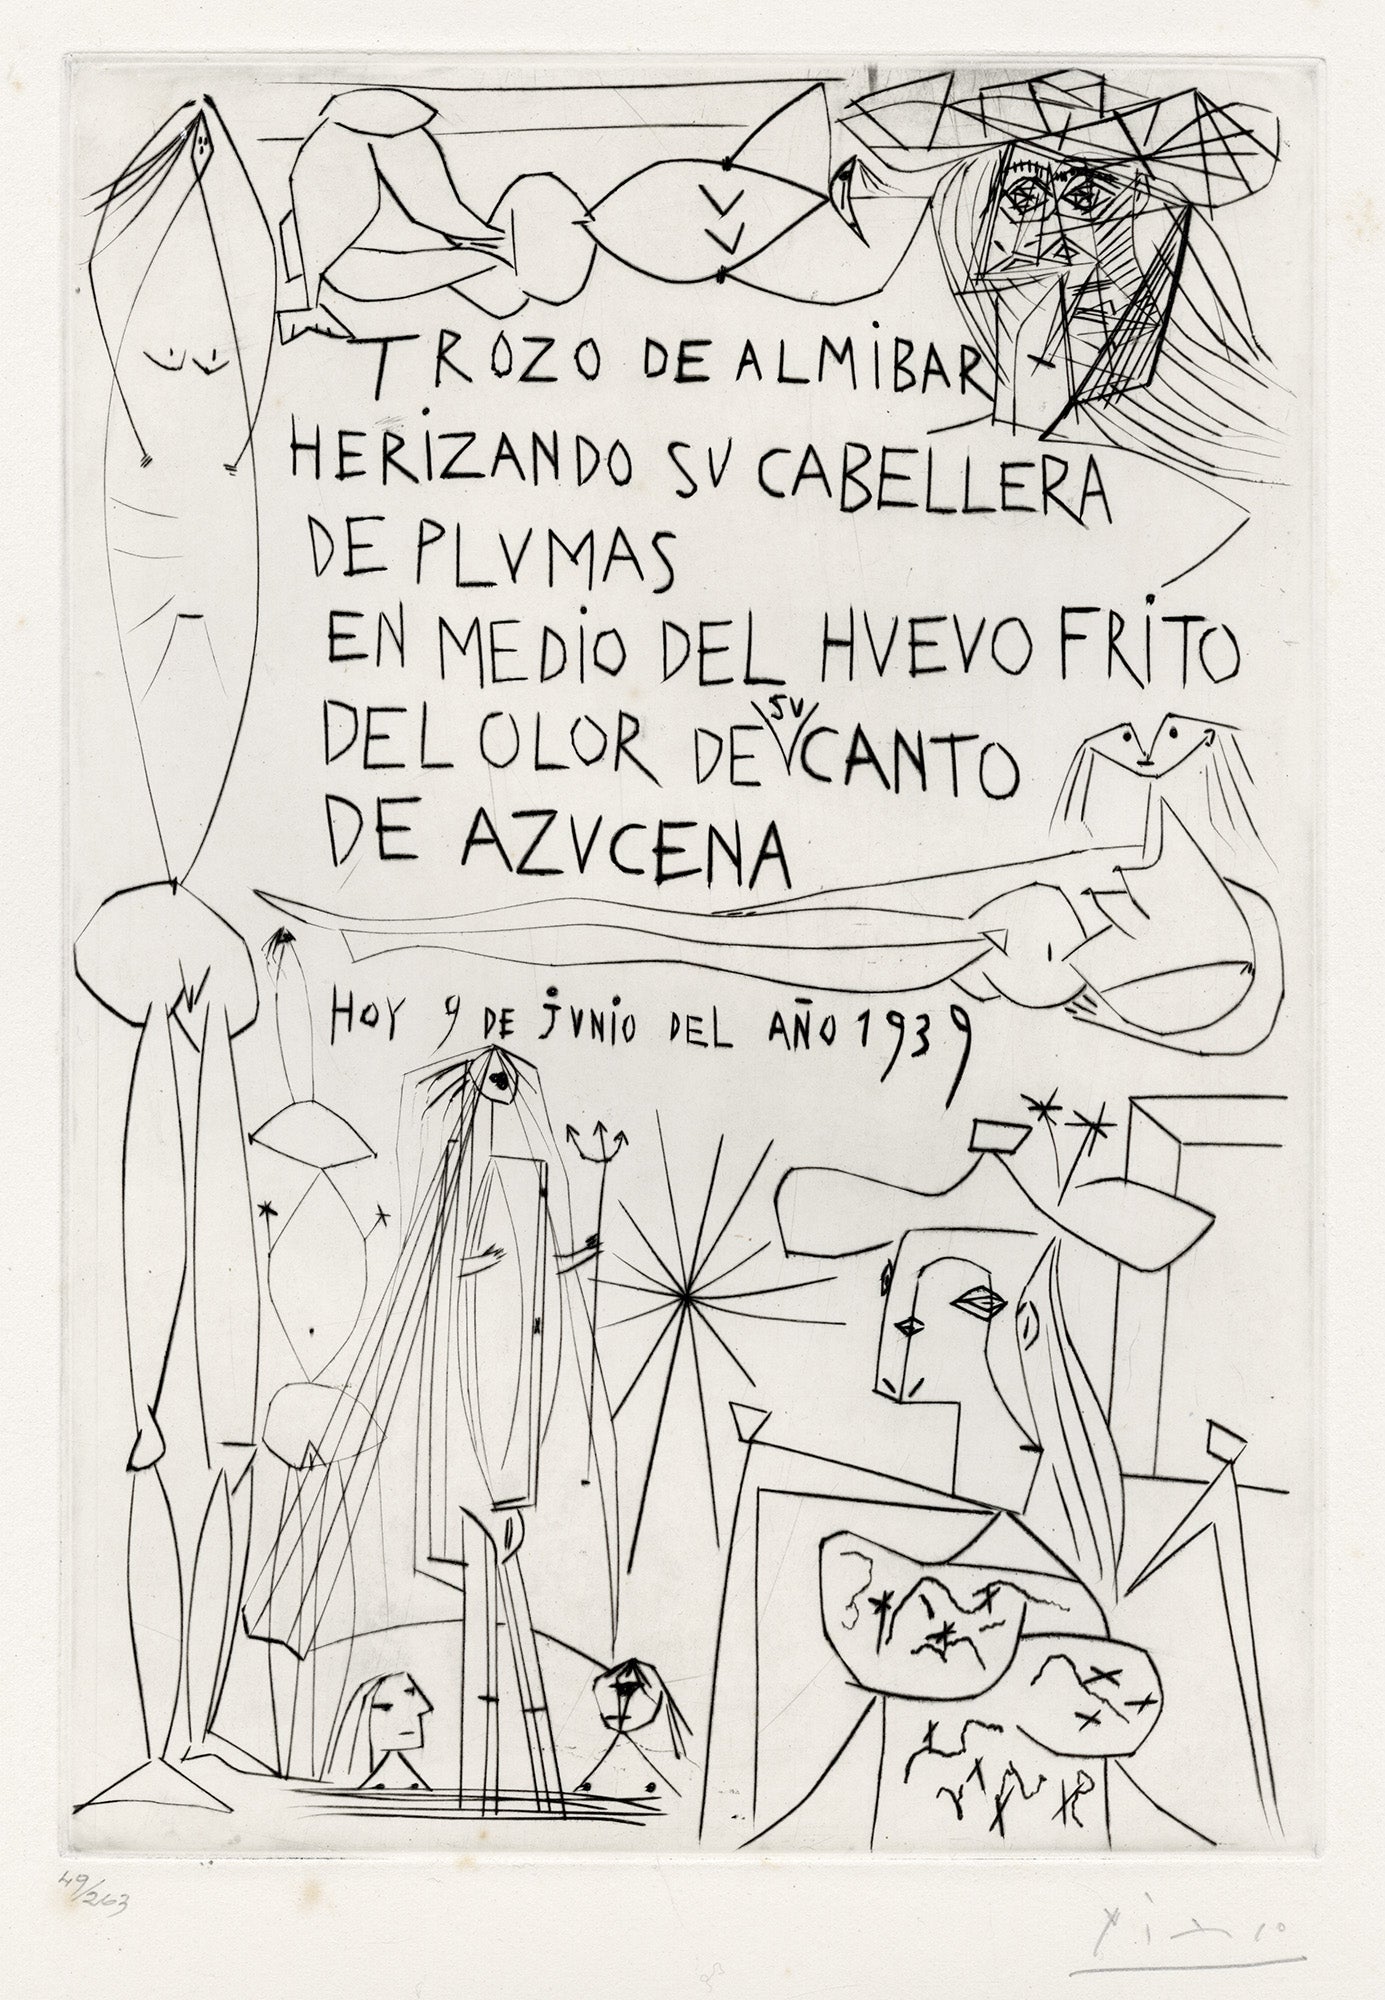 TROZO DE ALMiBAR
HERiZANDO SV CABELLERA
DE PLVMAS
EN MEDiO DEL HVEVO FRiTO
DEL OLOR DE SV CANTO
DE AZVCENA
HOY 9 DE jVNiO DEL AÑO 1939
49/263
Picasso